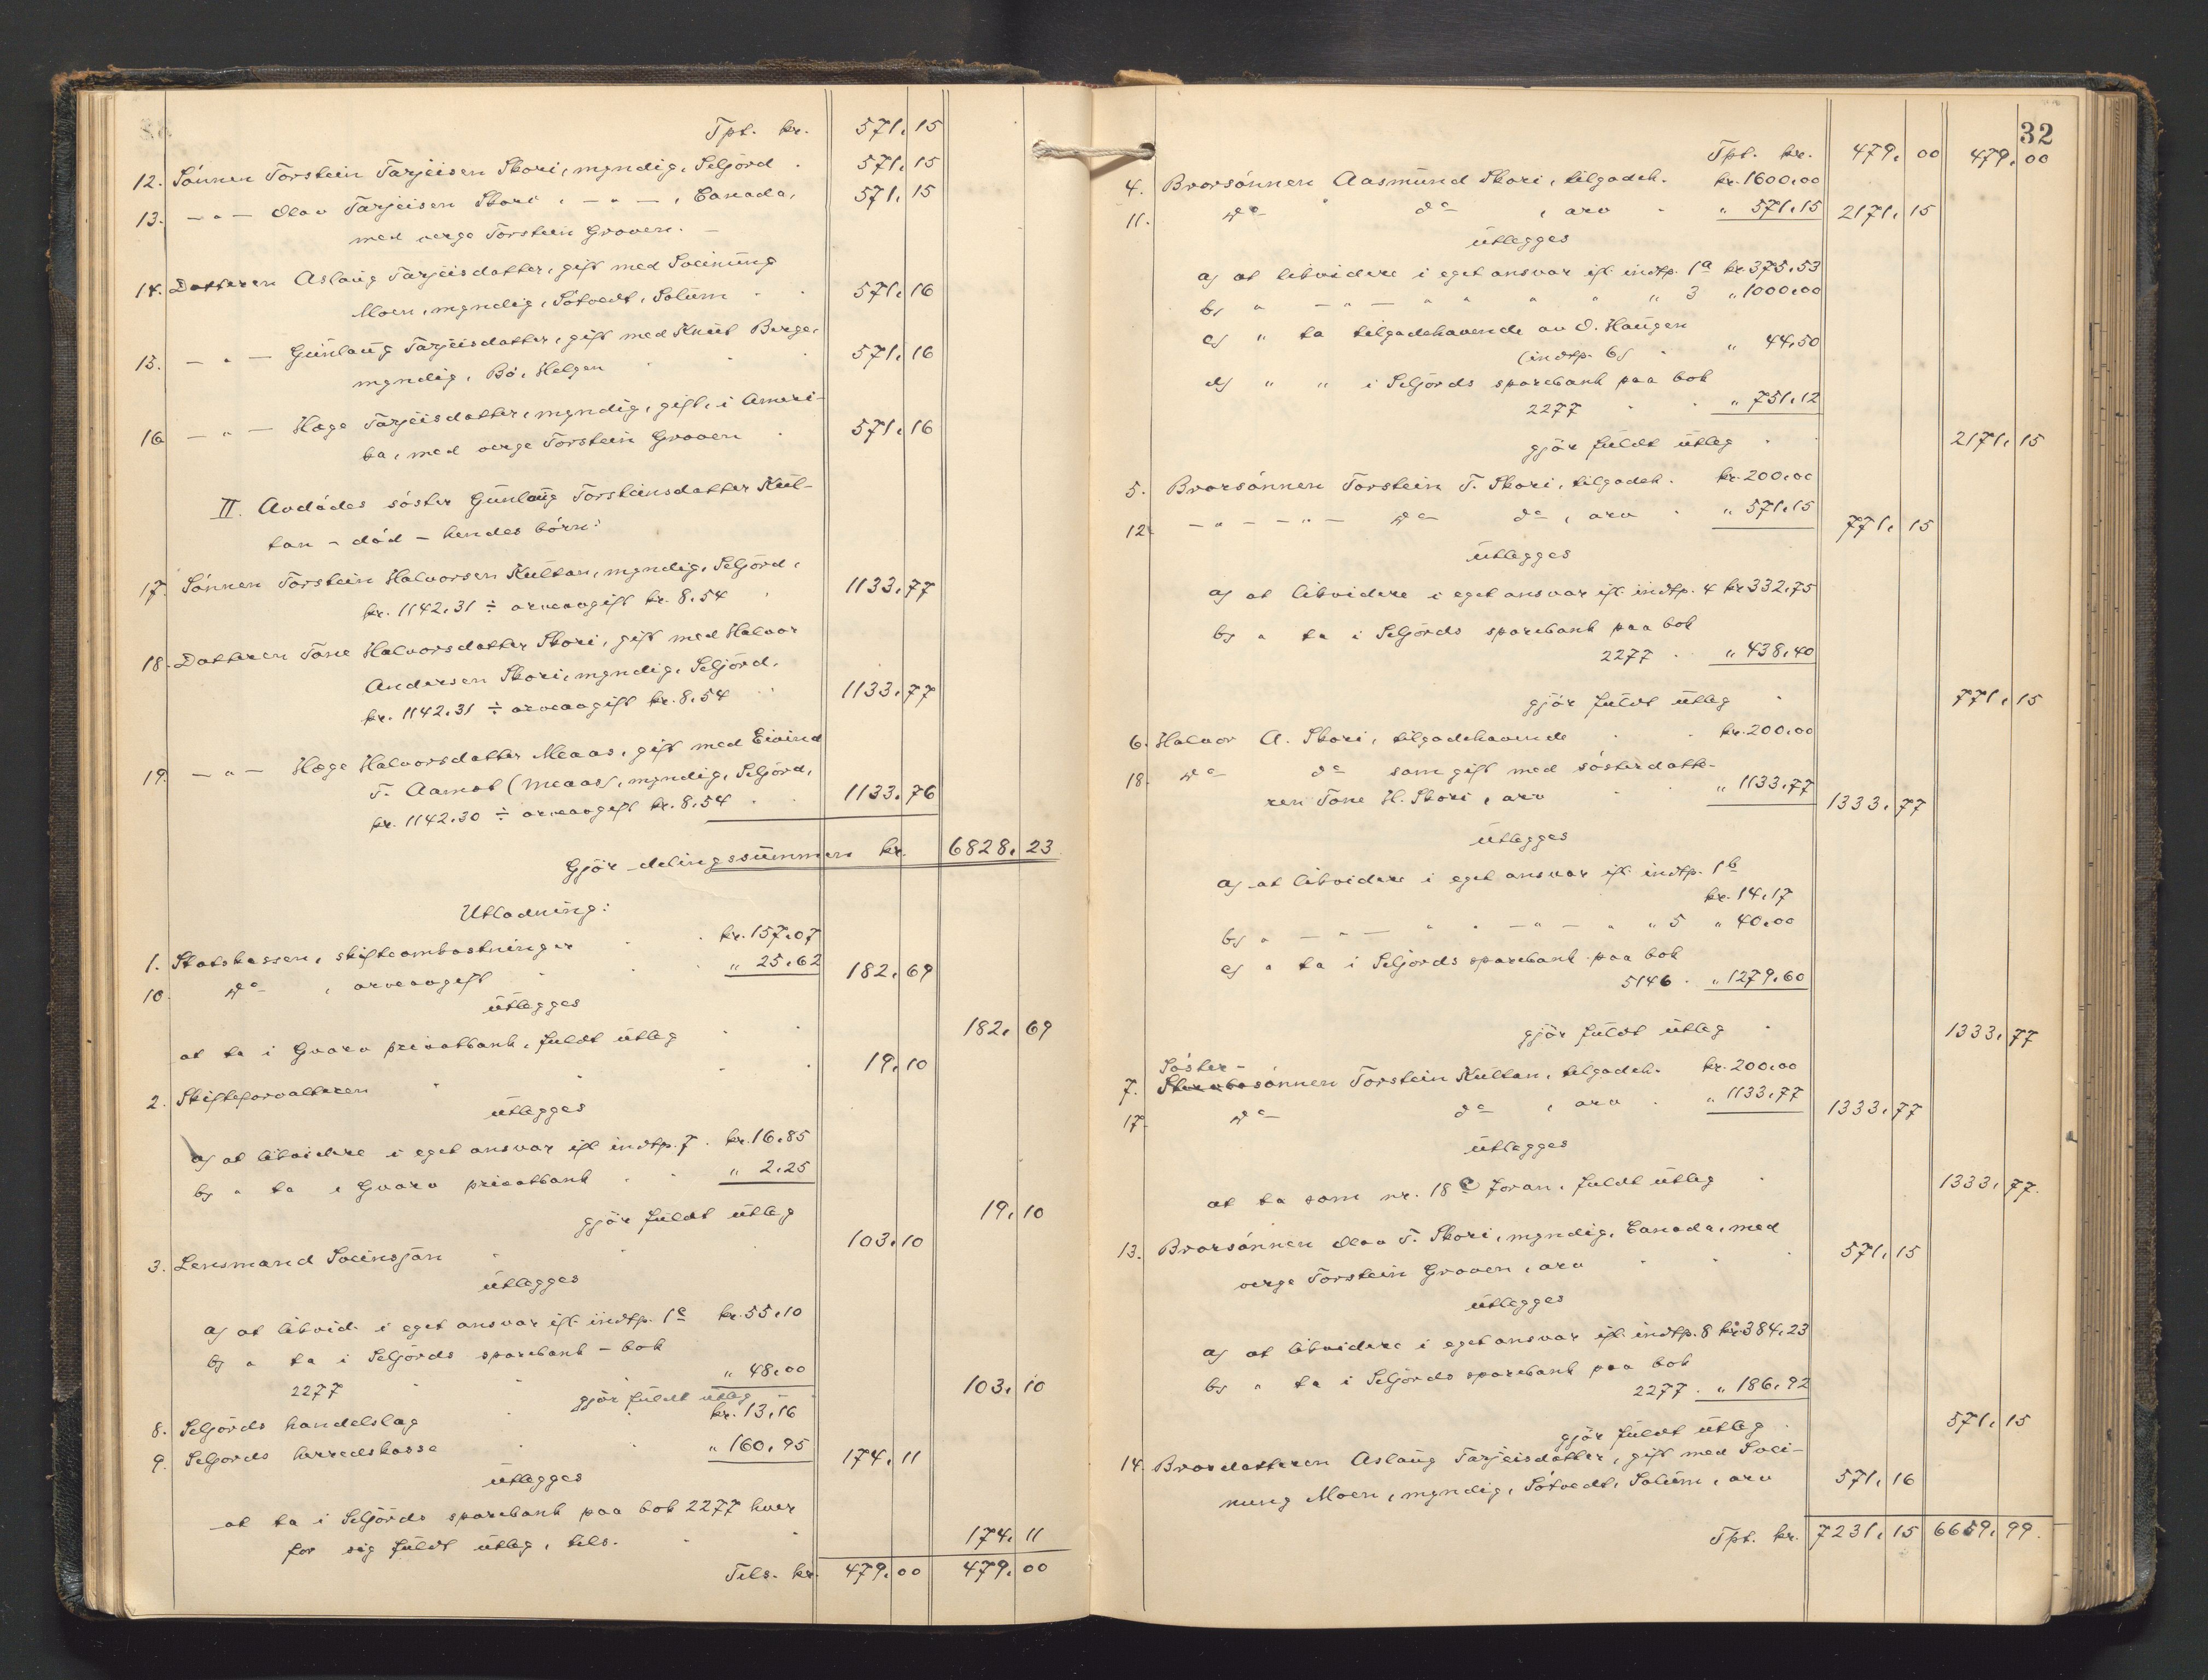 Tpt. kr. 571,15
12. Sönnen Torstein Tarjeisen Skori, myndig, Seljord . 571,15
13. — " — Olav Tarjeisen Skori, — " —, Canada, 571,15
med verge Torstein Groven. —
14. Datteren Aslaug Tarjeisdatter, gift med Sveinung
Moen, myndig, Sótvedt, Solum . . 571,16
15. — " — Gunlaug Tarjeisdatter, gift med Knut Berge,
myndig, Bó, Helgen . . 571,16
16 — " — Hæge Tarjeisdatter, myndig, gift, i Ameri-
ka, med verge Torstein Groven . 571,16
II. Avdódes sóster Gunlaug Torsteinsdatter Kul-
tan – dód – hendes bórn:
17. Sónnen Torstein Halvorsen Kultan, myndig, Seljord,
kr. 1142,31 ÷ arveavgift kr. 8,54 . 1133,77
18. Datteren Tone Halvorsdatter Skori, gift med Halvor
Andersen Skori, myndig, Seljord,
kr. 1142,31 ÷ arveavgift kr. 8,54 . . 1133,77
19. — " — Hæge Halvorsdatter Meaas, gift med Eivind
T. Aamot (Meaas), myndig, Seljord,
kr. 1142,30 ÷ arveavgift kr. 8,54 . . 1133,76
Gjör delingssummen kr. 6828,23
Utlodning:
1. Statskassen, skifteomkostninger . . kr. 157,07
10. do , arveavgift . . " 25,62 182,69
utlegges
at ta i Gvarv privatbank, fuldt utleg . . 182,69
2. Skifteforvalteren . . . . 19,10
utlegges
a) at likvidere i eget ansvar ifl indtp. 7 . kr. 16,85
b) " ta i Gvarv privatbank . . " 2,25
gjör fuldt utleg 19,10
3. Lensmand Sveinsjón . . . 103,10
utlegges
a) at likvid. i eget ansvar ifl. indtp. 1c kr. 55,10
b) " ta i Seljords sparebank – bok
2277 . . " 48,00
gjör fuldt utleg – . 103,10
8. Seljords handelslag . . kr. 13,16
9. Seljords herredskasse . . " 160,95 174,11
utlegges
at ta i Seljords sparebank paa bok 2277 hver
for sig fuldt utleg, tils. . . 174,11
Tils. kr. 479,00 479,00
32
Tpt. kr. 479,00 479,00
4. Brorsónnen Aasmund Skori, tilgodeh. kr. 1600,00
11. do do , arv . " 571,15 2171,15
utlegges
a) at likvidere i eget ansvar ifl. indtp. 1a kr. 375,53
b) " — " — " " " " " 3 " 1000,00
c) " ta tilgodehavende av O. Haugen
(indtp. 6) . " 44,50
d) " " i Seljords sparebank paa bok
2277 . . " 751,12
gjör fuldt utleg . . 2171,15
5. Brorsónnen Torstein T. Skori, tilgodeh. kr. 200,00
12. — " — " — do do , arv . " 571,15 771,15
utlegges
a) at likvidere i eget ansvar ifl. indtp. 4 kr. 332,75
b) " ta i Seljords sparebank paa bok
2277 . " 438,40
gjör fuldt utleg . 771,15
6. Halvor A. Skori, tilgodehavende . . kr. 200,00
18. do do som gift med sósterdatte-
ren Tone H. Skori, arv . . " 1133,77 1333,77
utlegges
a) at likvidere i eget ansvar ifl. indtp. 1b
kr. 14,17
b) " — " — " " — " — " " 5 " 40,00
c) " ta i Seljords sparebank paa bok
5146 . " 1279,60
gjör fuldt utleg . 1333,77
Sóster-
7. sónnen Torstein Kultan, tilgodeh. kr. 200,00
17. do do , arv . " 1133,77 1333,77
utlegges
at ta som nr. 18 c foran, fuldt utleg . 1333,77.
13. Brorsónnen Olav T. Skori, myndig, Canada, med
verge Torstein Groven, arv . . . 571,15
utlegges
a) at likvidere i eget ansvar ifl. indtp. 8 kr. 384,23
b) " ta i Seljords sparebank paa bok
2277 . " 186,92
gjör fuldt utleg . 571,15
14. Brordatteren Aslaug Tarjeisdatter, gift med Svei-
nung Moen, myndig, Sótvedt, Solum, arv 571,16
Tpt. kr. 7231,15 6659,99.